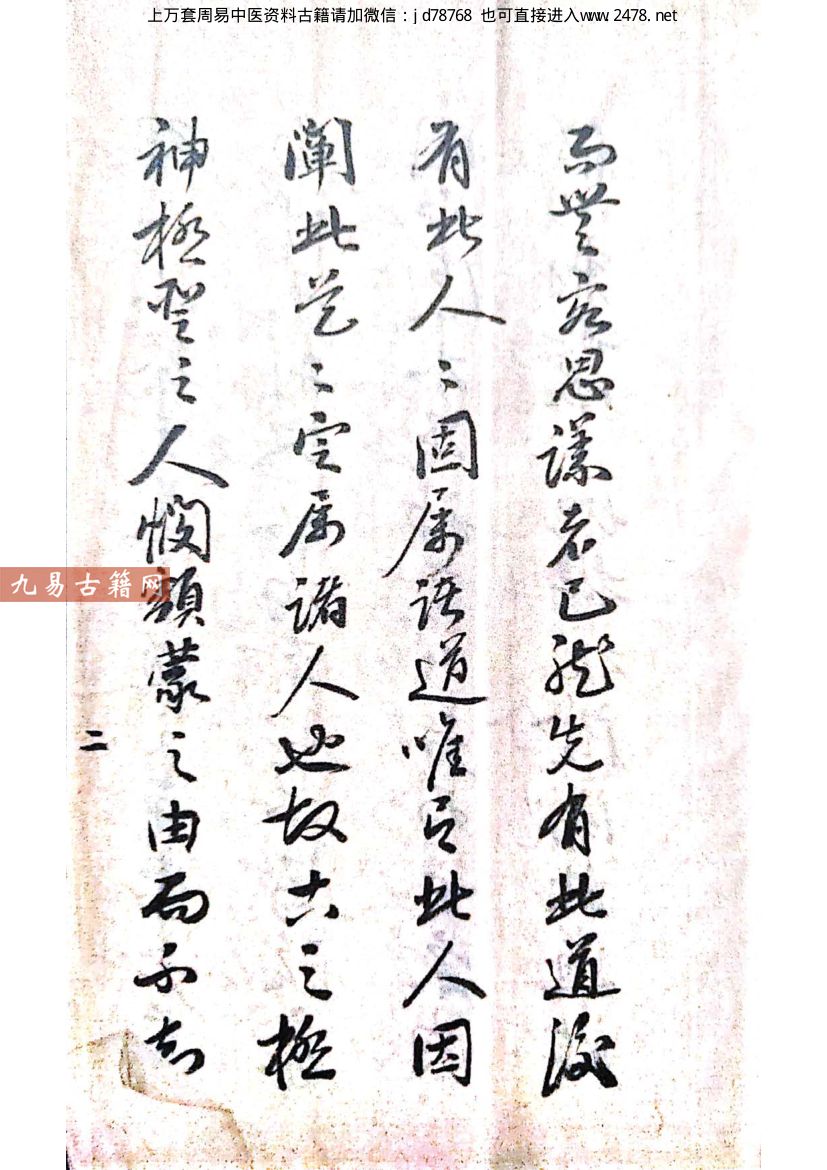 上万套周易中医资料古籍请加微信：jd78768 也可直接进入www.2478.net
而無容思議者已然先有此道後
有此人〻固屬諸道唯有此人因
闡此道〻定屬諸人也故古之極
神極聖之人憫顓蒙之由而不知
二
九易古籍网